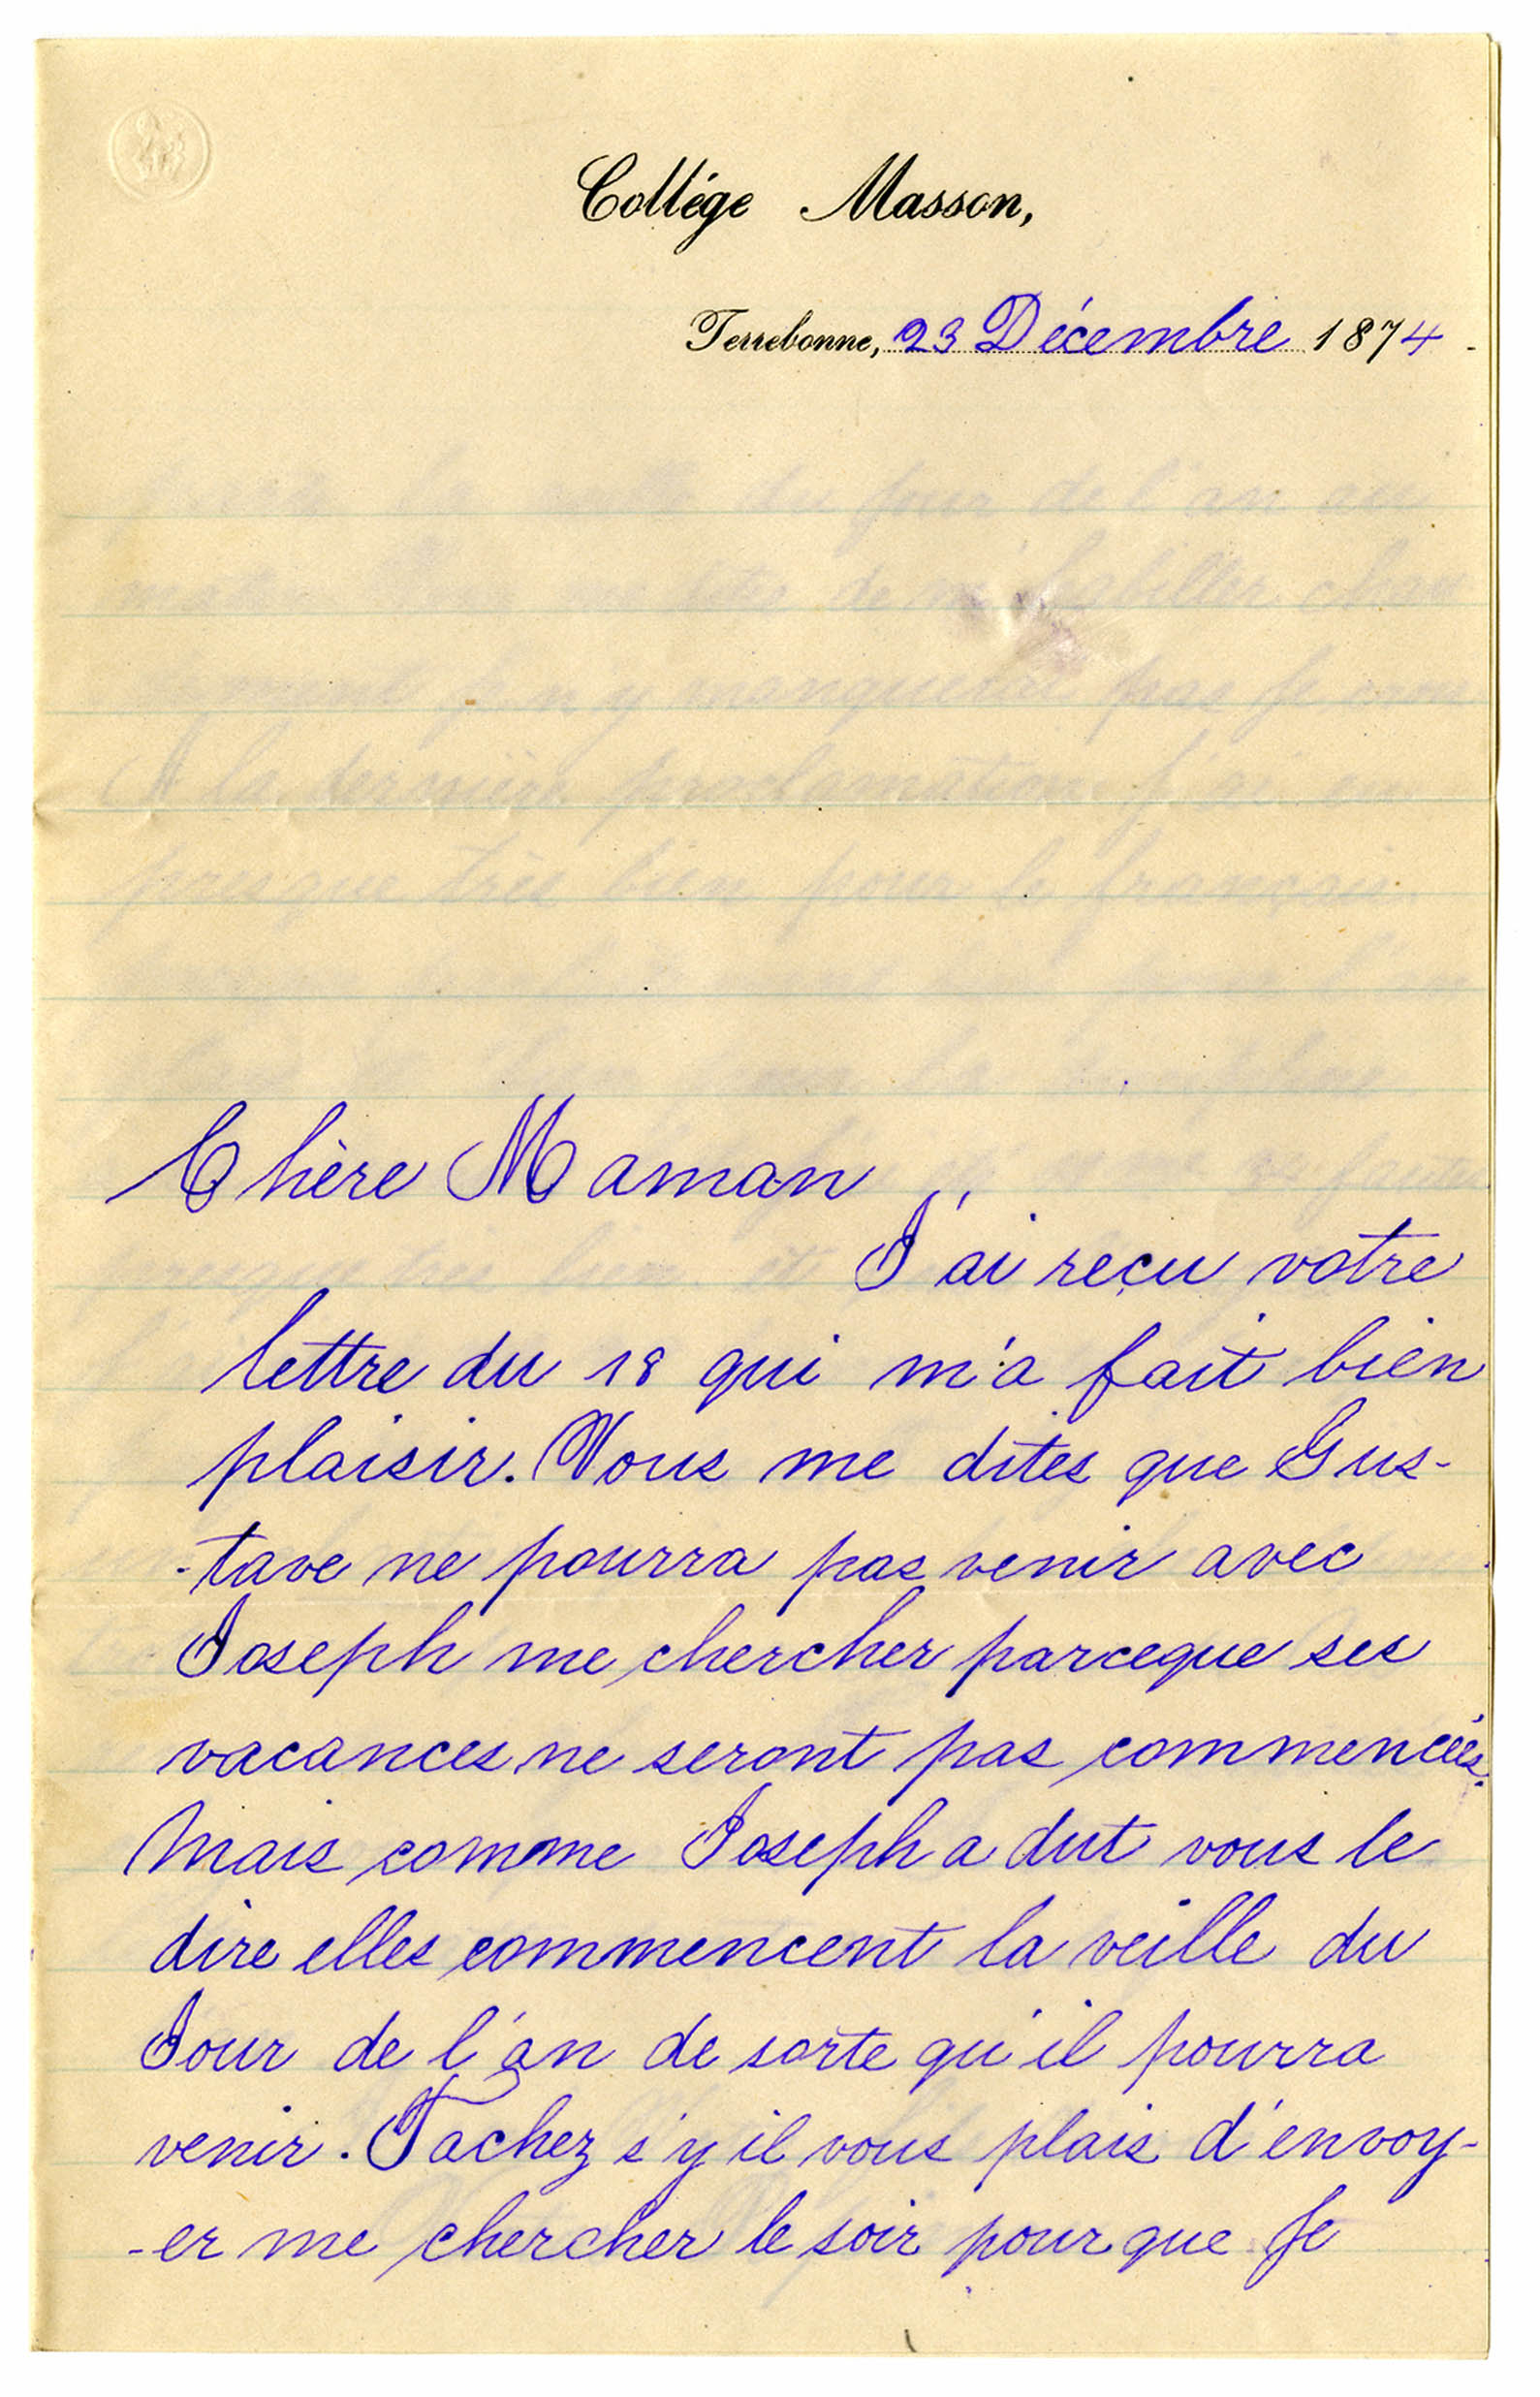 Collége Masson,
Terrebonne, 23 Décembre 1874
Chère Maman
J'ai reçu votre
lettre du 18 qui m'a fait bien
plaisir. Vous me dites que Gus-
-tave ne pourra pas venir avec
Joseph me chercher parceque ses
vacances ne seront pas commencées.
Mais comme Joseph a dut vous le
dire elles commencent la veille du
Jour de l'an de sorte qu'il pourra
venir. Tachez s'y il vous plais d'envoy-
-er me chercher le soir pour que Je